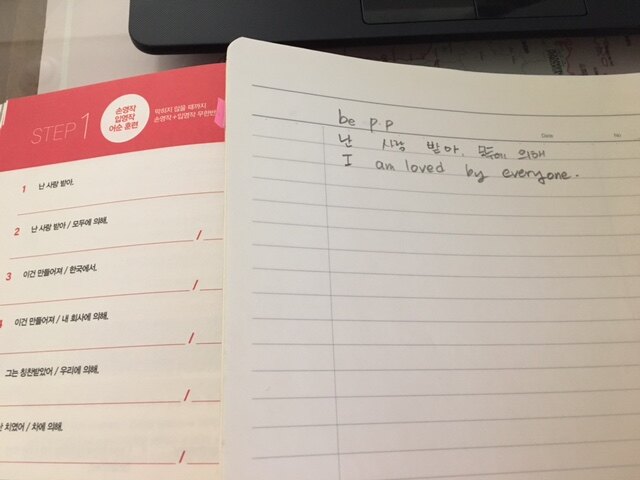 STEP 1
손영작
입영작
어순 훈련
막히지 않을 때까지
손영작+입영작 무한반
1 난 사랑 받아.
2 난 사랑 받아 / 모두에 의해.
/
3 이건 만들어져 / 한국에서.
/
4 이건 만들어져 / 내 회사에 의해.
/
그는 칭찬받았어 / 우리에 의해.
/
난 치였어 / 차에 의해.
/
be p.p
Date No
난 사랑 받아. 모두에 의해
I am loved by everyone.